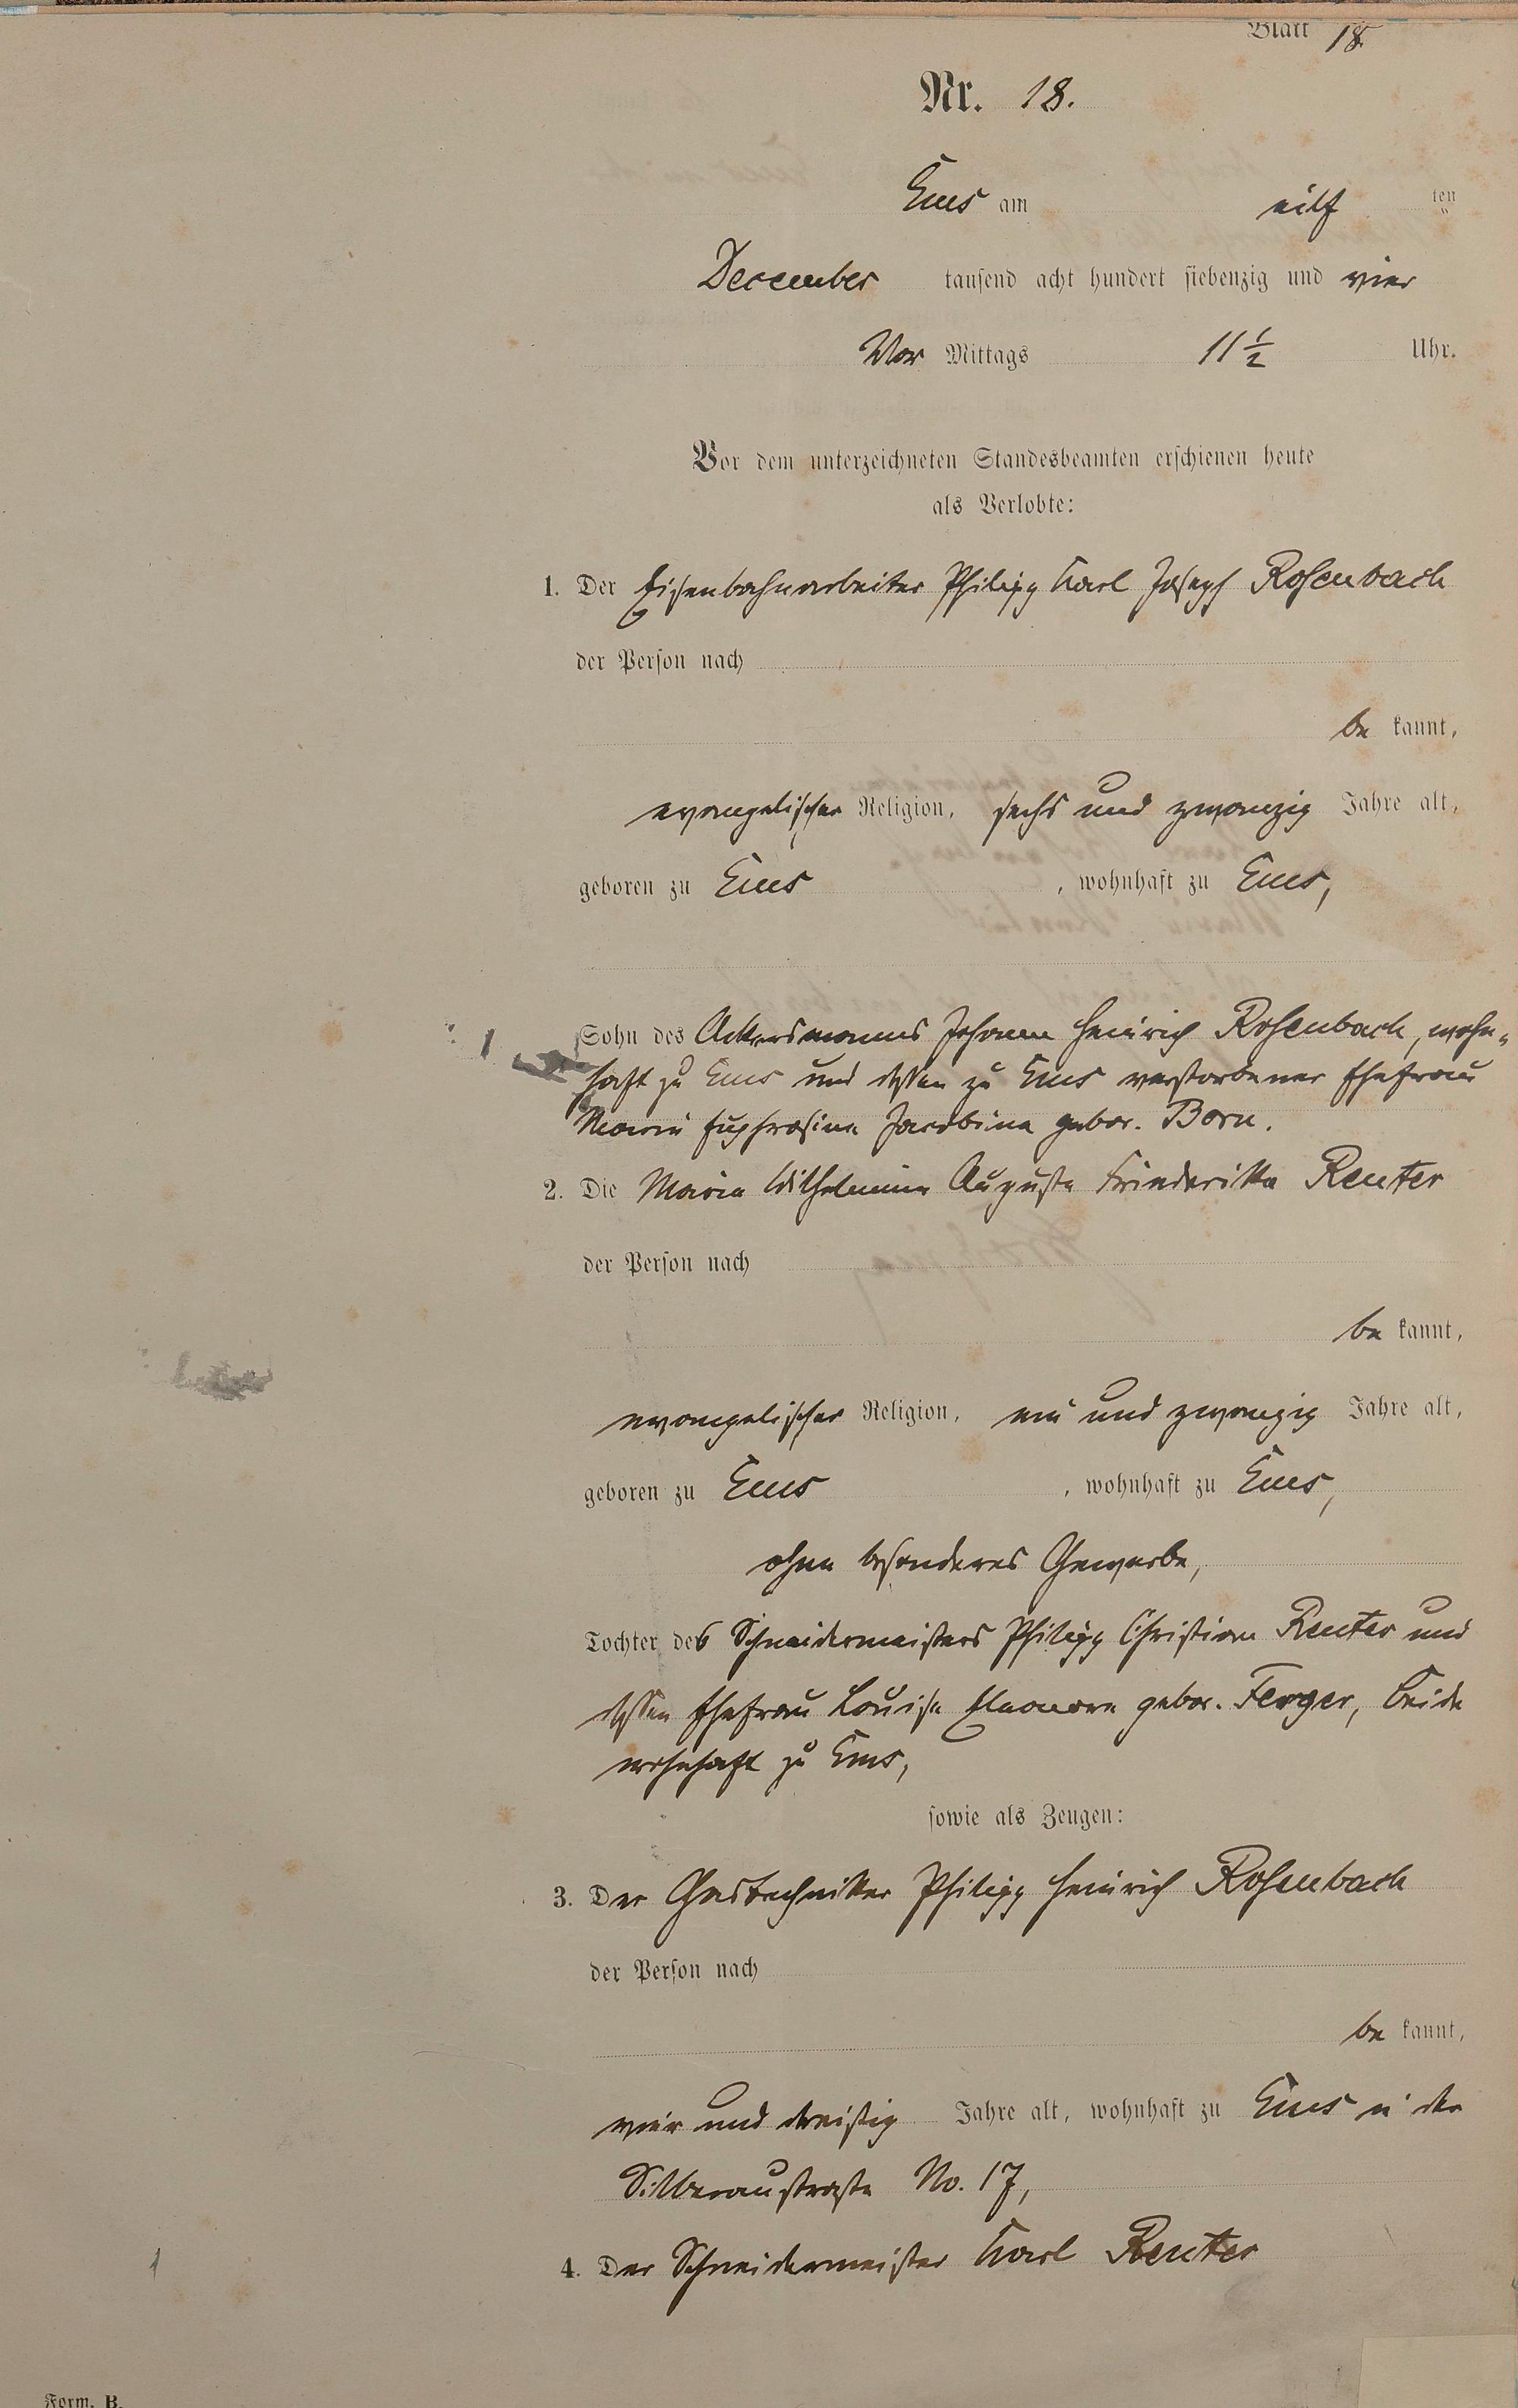 Blatt 18
Nr. 18.
Ems am eilf ten
December tausend acht hundert siebenzig und vier
Vor Mittags 11 1/2 Uhr.
Vor dem unterzeichneten Standesbeamten erschienen heute
als Verlobte:
1. Der Eisenbahnarbeiter Philipp Karl Joseph Rosenbach
der Person nach
be kannt,
evangelischer Religion, sechs und zwanzig Jahre alt,
geboren zu Ems, wohnhaft zu Ems,
Sohn des Ackersmannes Johann Heinrich Rosenbach, wohn-
haft zu Ems und dessen zu Ems verstorbener Ehefrau
Maria Euphrosina Jacobina gebor. Born.
2. Die Maria Wilhelmine Auguste Friederikka Reuter
der Person nach
be kannt,
evangelischer Religion, ein und zwanzig Jahre alt,
geboren zu Ems, wohnhaft zu Ems,
ohne besonderes Gewerbe,
Tochter des Schneidermeisters Philipp Christian Reuter und
dessen Ehefrau Louise Eleonore gebor. Ferger, beide
wohnhaft zu Ems,
sowie als Zeugen:
3. Der Gastechniker Philipp Heinrich Rosenbach
der Person nach
be kannt,
vier und dreißig Jahre alt, wohnhaft zu Ems in der
Silberaustraße No. 17,
4. Der Schneidermeister Karl Reuter
Form. B.